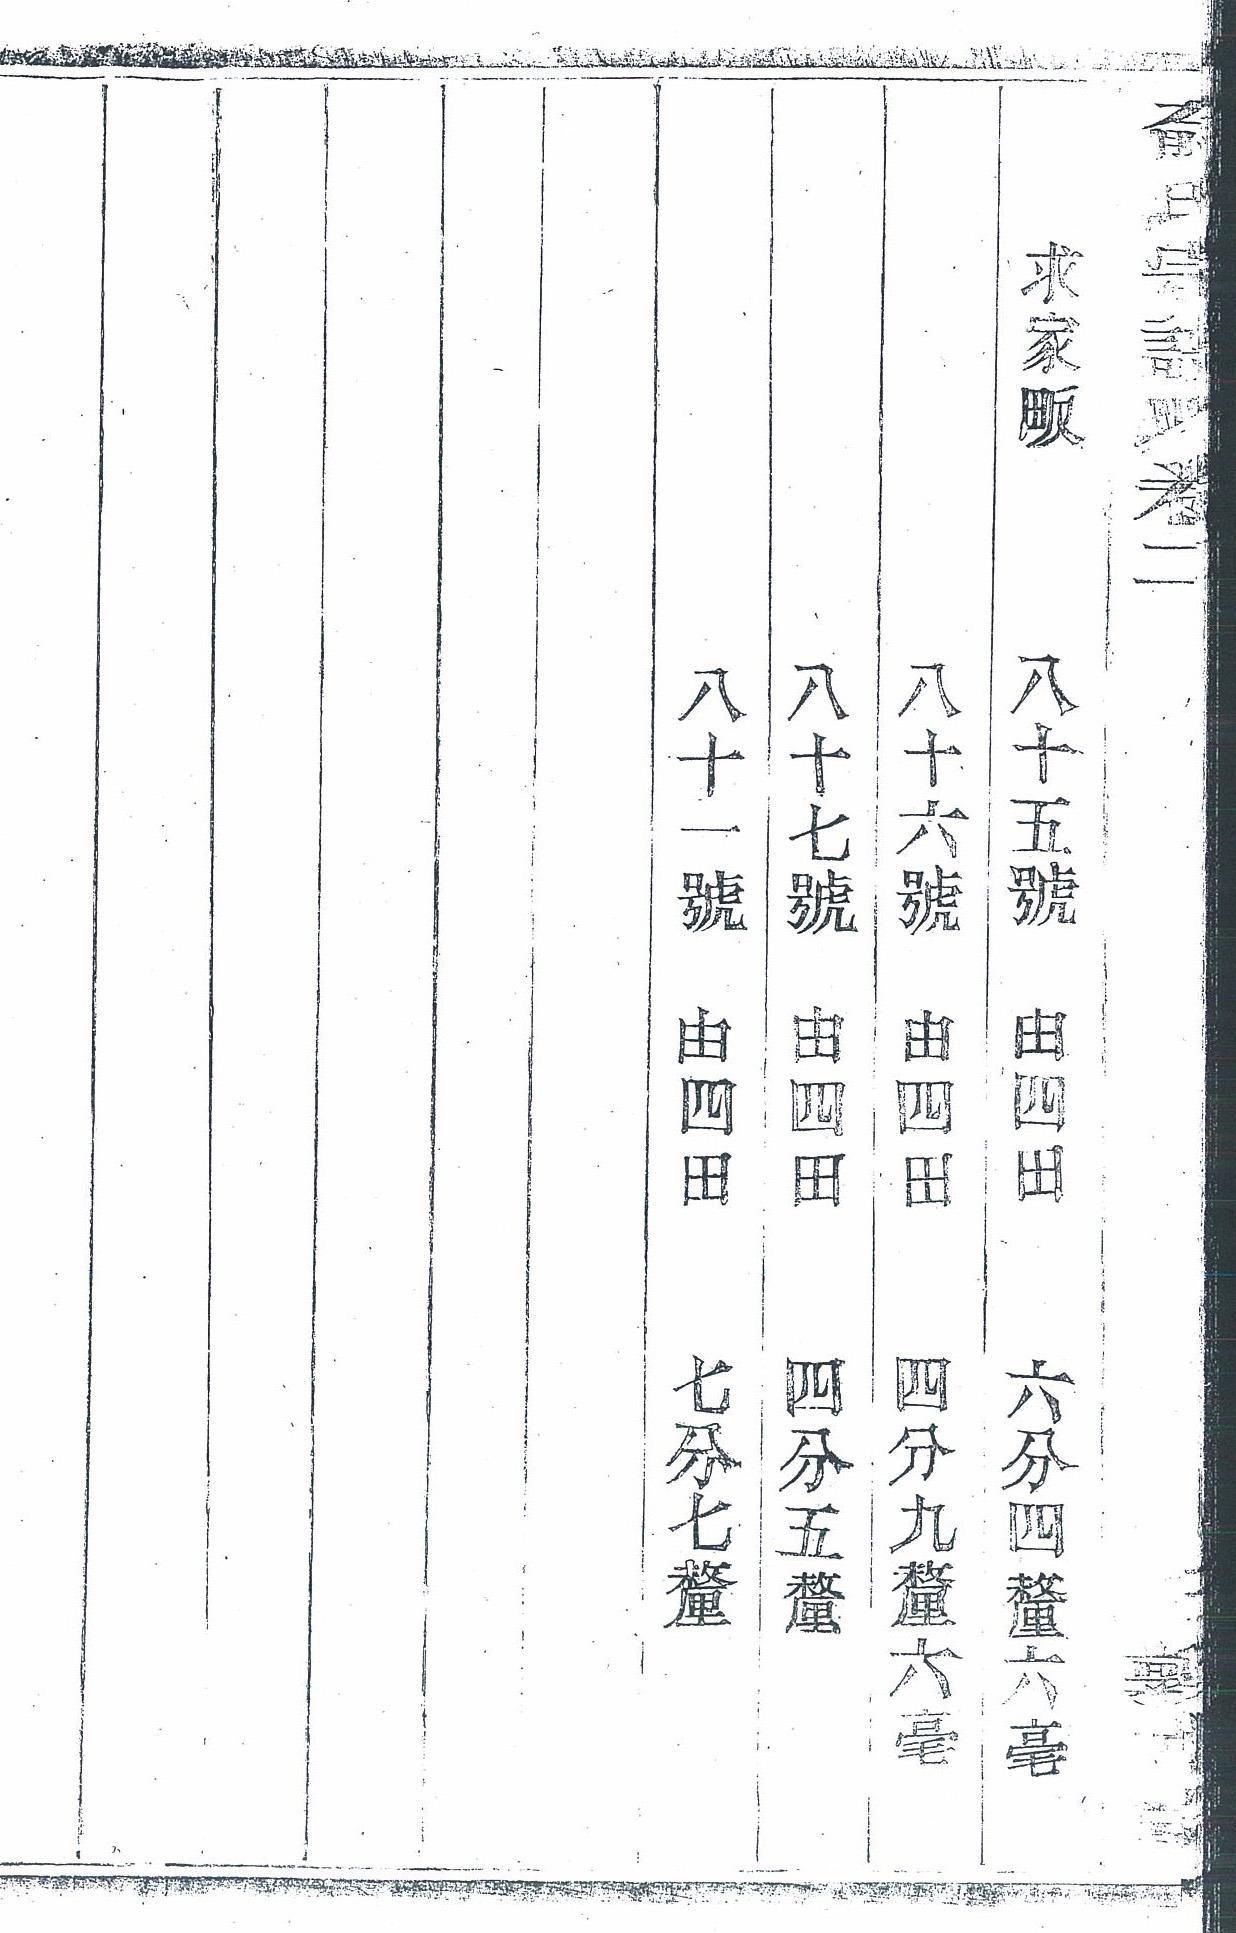 俞氏宗譜 卷二
求家畈 八十五號 由四田 六分四釐六毫
八十六號 由四田 四分九釐六毫
八十七號 由四田 四分五釐
八十一號 由四田 七分七釐